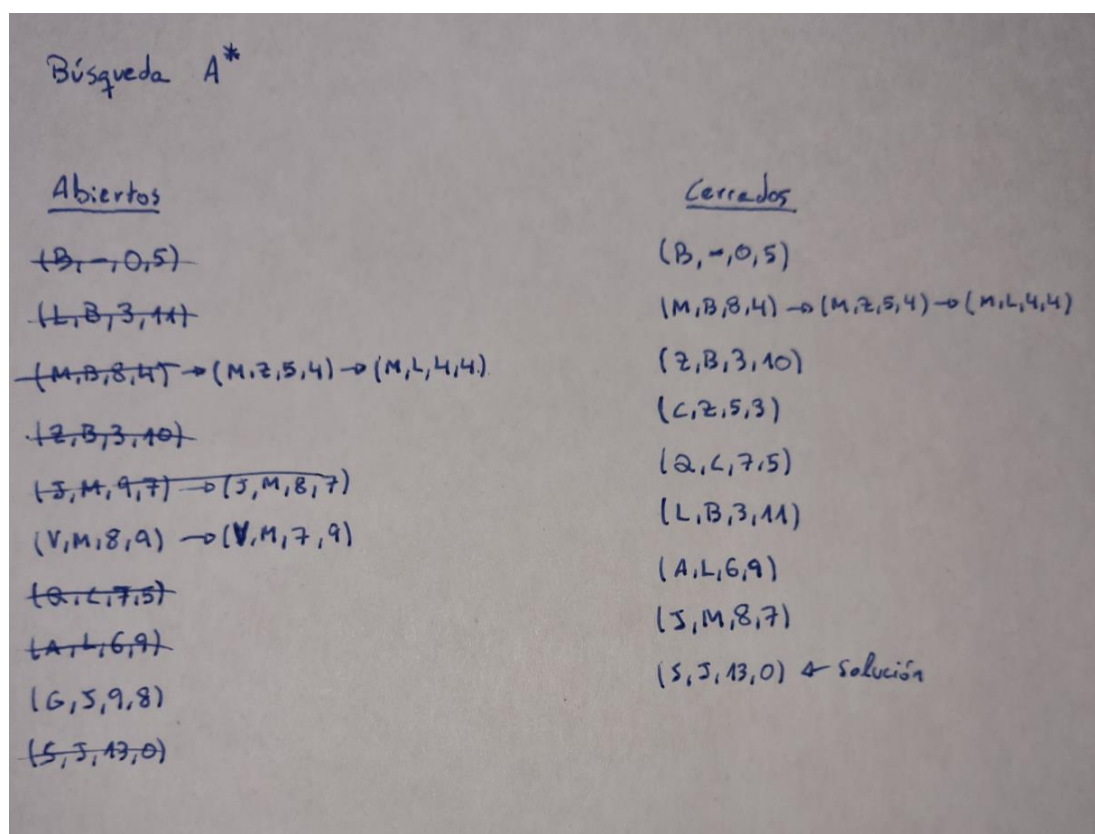 Búsqueda A*
Abiertos
(B,-,0,5)
(L,B,3,11)
(M,B,8,4) → (M,Z,5,4) → (M,L,4,4)
(Z,B,3,10)
(J,M,9,7) → (J,M,8,7)
(V,M,8,9) → (V,M,7,9)
(Q,C,7,5)
(A,L,6,9)
(G,J,9,8)
(S,J,13,0)
Cerrados
(B,-,0,5)
(M,B,8,4) → (M,Z,5,4) → (M,L,4,4)
(Z,B,3,10)
(C,Z,5,3)
(Q,C,7,5)
(L,B,3,11)
(A,L,6,9)
(J,M,8,7)
(S,J,13,0) ← Solución